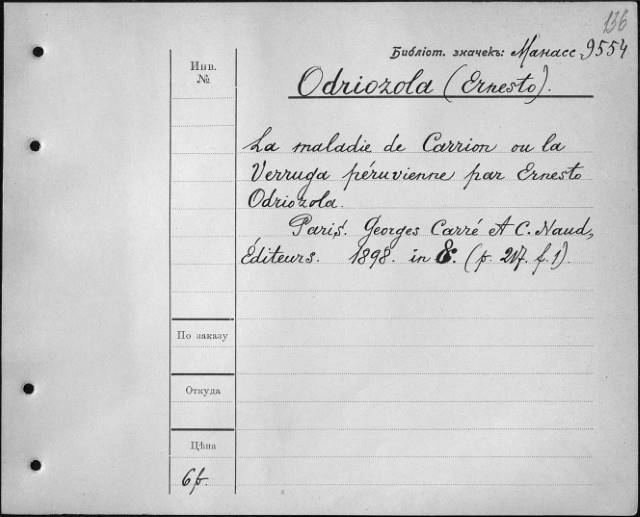 136
Библіот. значекъ: Манасс. 9554
Инв.
№
Odriozola (Ernesto).
La maladie de Carrion ou la
Verruga péruvienne par Ernesto
Odriozola.
Paris. Georges Carré et C. Naud,
Éditeurs. 1898. in 8. (p. 217. f. 1).
По заказу
Откуда
Цѣна
6 р.